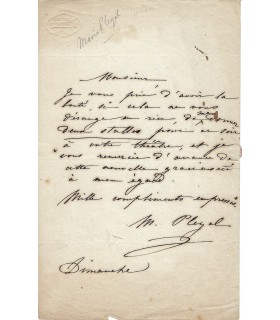 Marie Pleyel
Monsieur
Je vous prie d'avoir la
bonté, si cela ne vous
dérange en rien, de me donner
deux stalles pour ce soir
à votre théâtre, et je
vous remercie d'avance de
cette nouvelle gracieuseté
à mon égard.
Mille compliments empressés
M. Pleyel
Dimanche